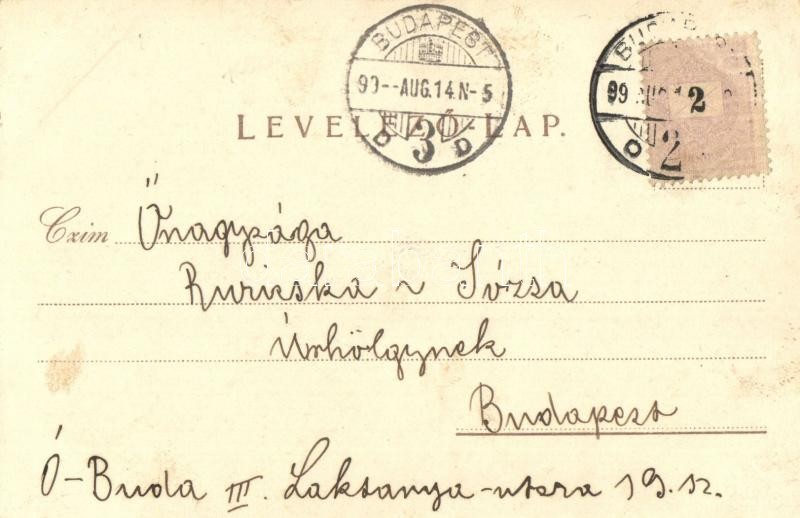 BUDAPEST
99--AUG.14.N-5
3
D D
BUDAPEST
99 AUG.1
D 2
2
LEVELEZŐ-LAP.
Czim Őnagysága
Ruricska Józsa
Úrhölgynek
Budapest
Ó-Buda III. Laktanya-utcza 19. sz.